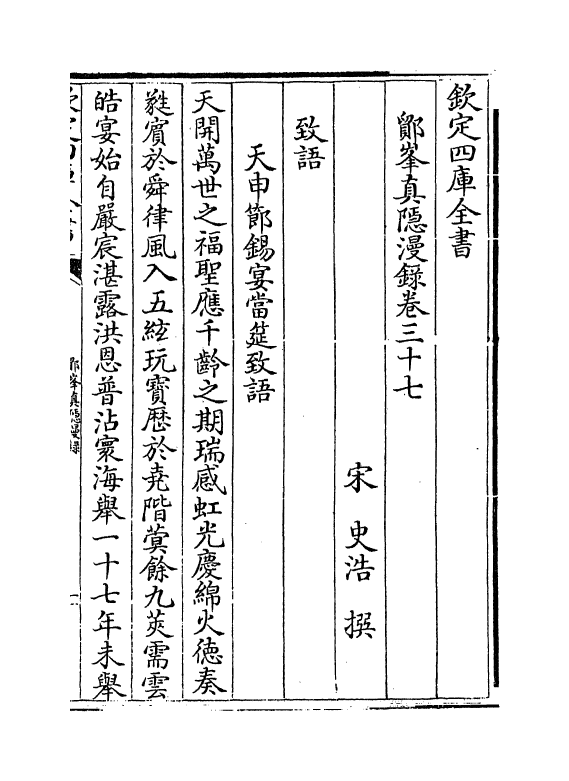 欽定四庫全書
鄮峯真隱漫録卷三十七
宋 史浩 撰
致語
天申節錫宴當筵致語
天開萬世之福聖應千齡之期瑞感虹光慶綿火徳奏
蕤賓於舜律風入五絃玩寳厯於堯階蓂餘九莢需雲
皓宴始自嚴宸湛露洪恩普沾寰海舉一十七年未舉
鄮峯真隱漫録